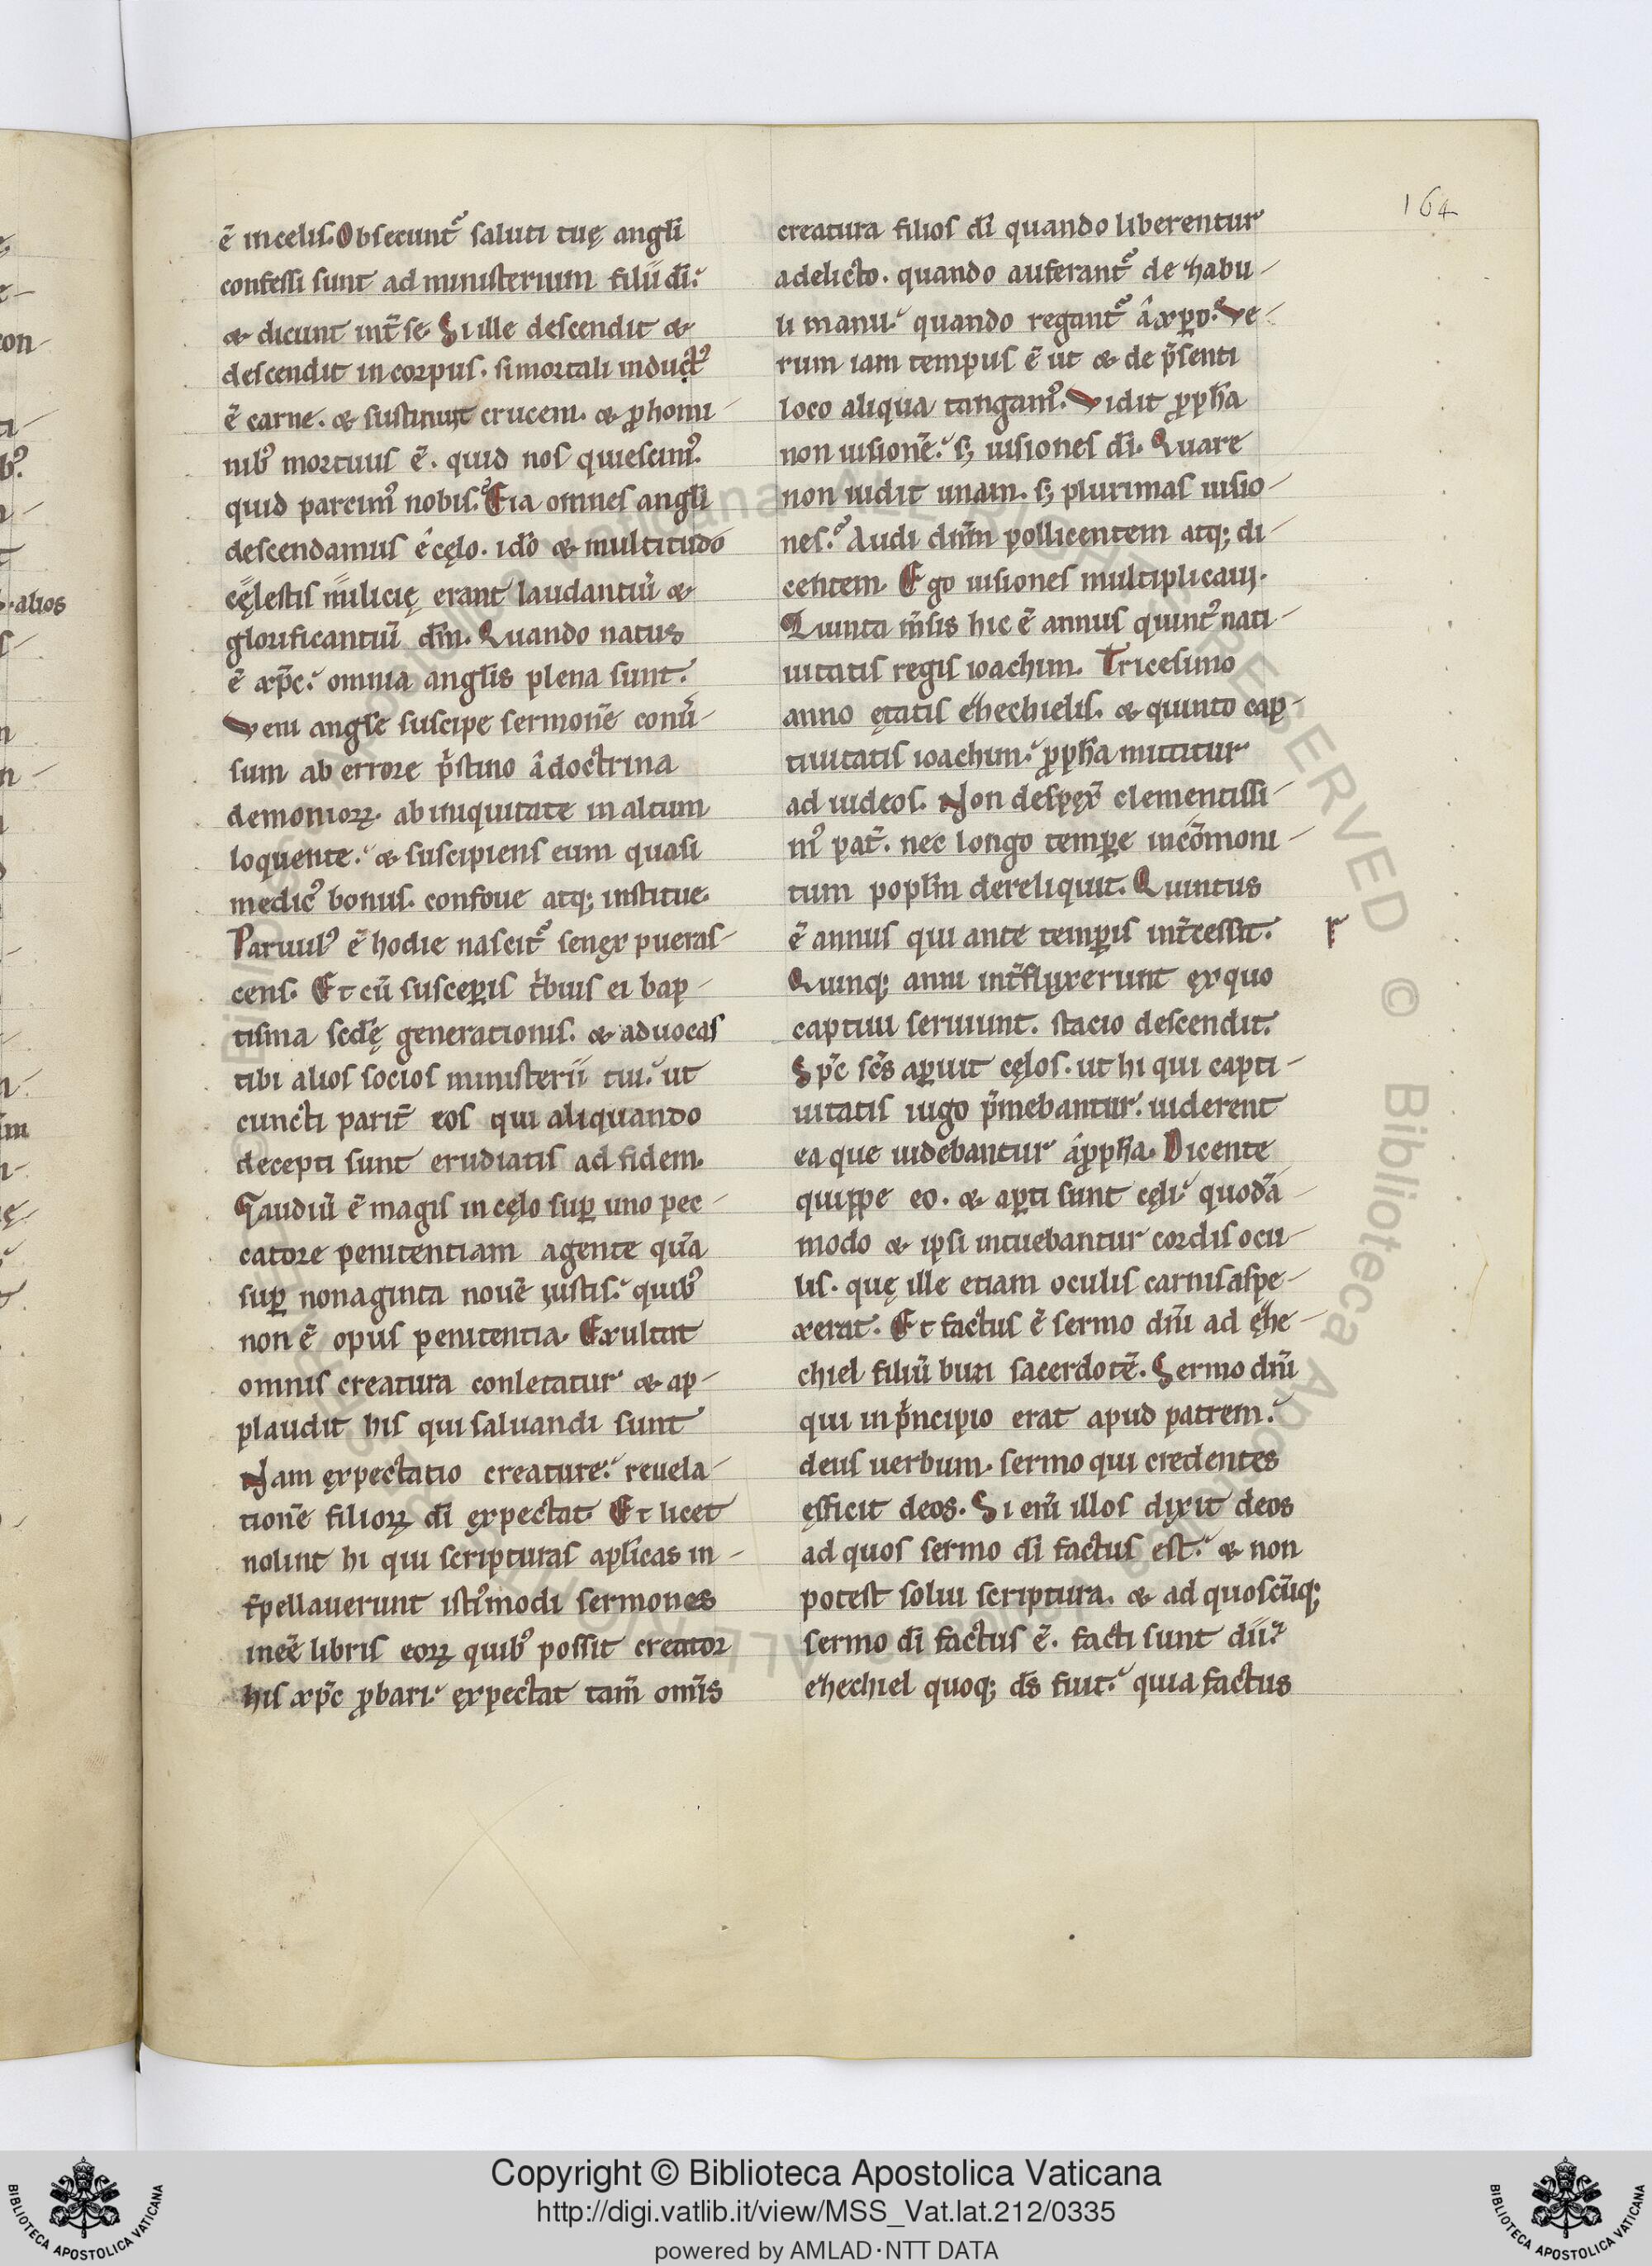 164
ē in celis. Obsecunt᷑ saluti tuę angl̄i
confessi sunt ad ministerium filii dī.
& dicunt int̄ se. Si ille descendit &
descendit in corpus. si mortali induct᷒
ē carne. & sustinuit crucem. & ꝓ homi-
nib᷒ mortuus ē. quid nos quiescim᷒.
quid parcim᷒ nobis? Eia omnes angl̄i
descendamus e cęlo. idō & multitudo
cęlestis milicię erant laudantiū &
glorificantiū dm̄. Quando natus
ē xp̄c. omnia angl̄is plena sunt.
Veni angl̄e suscipe sermonē conū-
sum ab errore p̄stino a doctrina
demonioꝝ. ab iniquitate in altum
loquente. & suscipiens eum quasi
medic᷒ bonus. confoue atq; institue.
Paruul᷒ ē hodie nascit᷑ senex pueras-
cens. Et cū susceꝑis t̄buis ei bap-
tisma scd̄ę generationis. & aduocas
tibi alios socios ministerii tui. ut
cuncti parit̄ eos qui aliquando
decepti sunt erudiatis ad fidem.
Gaudiū ē magis in cęlo suꝑ uno pec-
catore penitentiam agente quā
suꝑ nonaginta nouē iustis. quib᷒
non ē opus penitentia. Exultat
omnis creatura conletatur & ap-
plaudit his qui saluandi sunt
Nam expectatio creature. reuela-
tionē filioꝝ dī expectat. Et licet
nolint hi qui scripturas apl̄icas in-
t̄pellauerunt isti᷒modi sermones
ineē libris eoꝝ quib᷒ possit creator
his xp̄c ꝓbari. expectat tam̄ om̄is
creatura filios dī quando liberentur
a delicto. quando auferant᷑ de habu-
li manu. quando regant᷑ a xp̄o. Ve-
rum iam tempus ē ut & de p̄senti
loco aliqua tangam᷒. Vidit ꝓph̄a
non uisionē. s; uisiones dī. Quare
non uidit unam. s; plurimas uisio-
nes? Audi dnm̄ pollicentem atq; di-
centem. Ego uisiones multiplicaui.
Quinta m̄sis hic ē annus quint᷒ nati-
uitatis regis ioachim. Tricesimo
anno ętatis ehechielis. & quinto cap-
tiuitatis ioachim. ꝓph̄a mittitur
ad iudeos. Non despex̄ clementissi-
m᷒ pat̄. nec longo temꝑe incōmoni-
tum popl̄m dereliquit. Quintus
ē annus qui ante temꝑis int̄cessit.
r
Quinq; anni int̄fluxerunt ex quo
captiui seruiunt. stacio descendit.
Sp̄c sc̄s aꝑuit cęlos. ut hi qui capti-
uitatis iugo p̄mebantur. uiderent
ea que uidebantur a ꝓph̄a. Dicente
quippe eo. & aꝑti sunt cęli. quodā
modo & ipsi intuebantur cordis ocu-
lis. quę ille etiam oculis carnis aspe-
xerat. Et factus ē sermo dn̄i ad ęhe-
chiel filiū buzi sacerdotē. Sermo dn̄i
qui in p̄ncipio erat apud patrem.
deus uerbum. sermo qui credentes
efficit deos. Si eni᷒ illos dixit deos
ad quos sermo dī factus est. & non
potest solui scriptura. & ad quoscūq;
sermo dī factus ē. facti sunt dii.
ehechiel quoq; ds̄ fuit. quia factus
alios
Copyright © Biblioteca Apostolica Vaticana
http://digi.vatlib.it/view/MSS_Vat.lat.212/0335
powered by AMLAD·NTT DATA
BIBLIOTECA APOSTOLICA VATICANA
BIBLIOTECA APOSTOLICA VATICANA